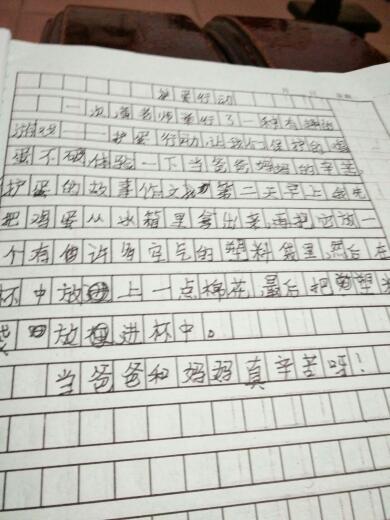 护蛋行动
一次潘老师举行了一种有趣的
游戏——护蛋行动,让我们保护的鸡
蛋不破体验一下当爸爸妈妈的辛苦。
护蛋的故事作文 第二天早上我先
把鸡蛋从冰箱里拿出来再把它放一
个有许多空气的塑料袋里然后在
杯中放上一点棉花,最后把塑料
袋放进杯中。
当爸爸和妈妈真辛苦呀!